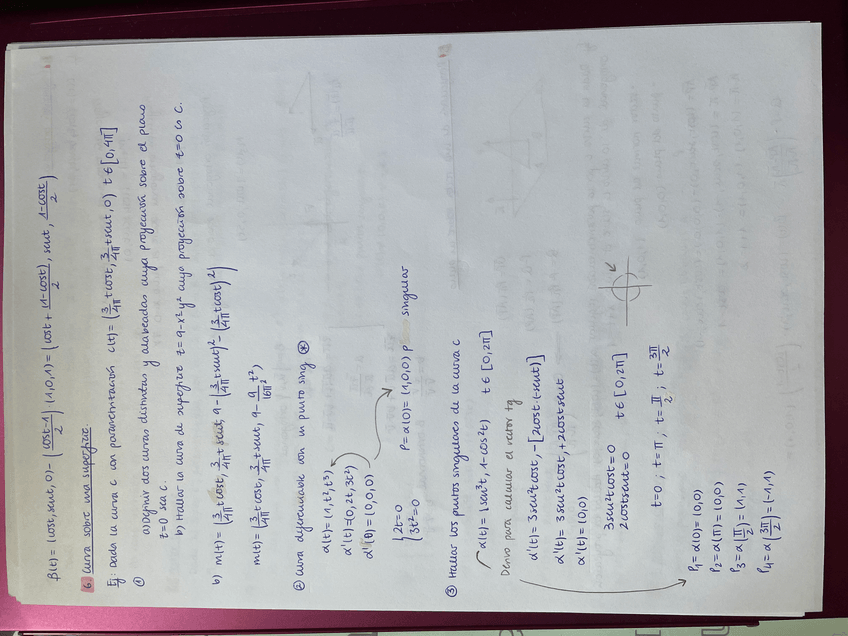 β(t) = (cost, sent, 0) - (cost-1/2) (1,0,1) = (cost + (1-cost)/2, sent, 1-cost/2)
6. Curva sobre una superficie.
Ej: Dada la curva c con parametrización c(t) = (3/4π t cost, 3/4π t sent, 0) t ∈ [0, 4π]
①
a) Definir dos curvas distintas y alabeadas cuya proyección sobre el plano
z=0 sea c.
b) Hallar la curva de superficie z = 9-x²y² cuya proyección sobre z=0 es c.
b) m(t) = (3/4π t cost, 3/4π t sent, 9 - (3/4π t sent)² - (3/4π t cost)²)
m(t) = (3/4π t cost, 3/4π t sent, 9 - 9/16π² t²)
② Curva diferenciable con un punto sing ⊛
α(t) = (1, t², t³)
α'(t) = (0, 2t, 3t²)
α'(0) = (0,0,0)
{ 2t=0
3t²=0
P = α(0) = (1,0,0) P singular
③ Hallar los puntos singulares de la curva c
α(t) = (sen³t, 1-cos²t) t ∈ [0, 2π]
Derivo para calcular el vector tg
α'(t) = 3sen²t cost, -[2cost·(-sent)]
α'(t) = 3sen²t cost, +2cost sent
α'(t) = (0,0)
3sen²t cost = 0
2cost sent = 0
t ∈ [0, 2π]
t=0 ; t=π ; t=π/2 ; t=3π/2
P₁ = α(0) = (0,0)
P₂ = α(π) = (0,0)
P₃ = α(π/2) = (1,1)
P₄ = α(3π/2) = (-1,1)